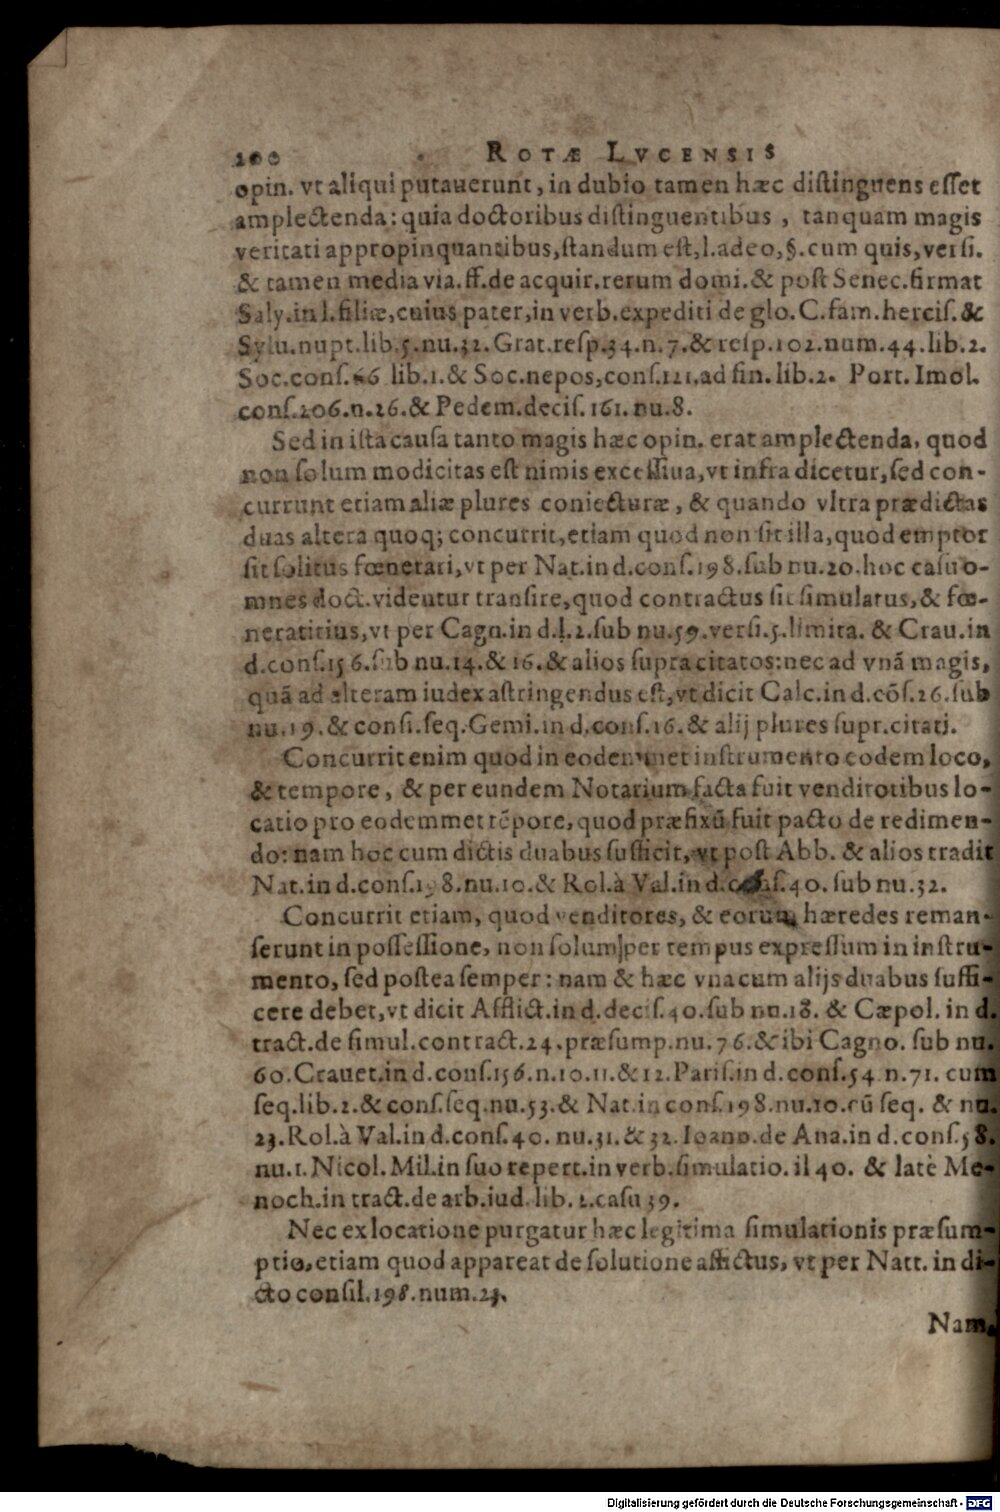 200 ROTÆ LVCENSIS
opin. vt aliqui putauerunt, in dubio tamen hæc distinguens esset
amplectenda: quia doctoribus distinguentibus, tanquam magis
veritati appropinquantibus, standum est, l. adeo, §. cum quis, versi.
& tamen media via. ff. de acquir. rerum domi. & post Senec. firmat
Saly. in l. filiæ, cuius pater, in verb. expediti de glo. C. fam. hercis. &
Sylu. nupt. lib. 5. nu. 32. Grat. resp. 34. n. 7. & resp. 102. num. 44. lib. 2.
Soc. cons. 66 lib. 1. & Soc. nepos, cons. 121. ad fin. lib. 2. Port. Imol.
cons. 206. n. 26. & Pedem. decis. 161. nu. 8.
Sed in ista causa tanto magis hæc opin. erat amplectenda, quod
non solum modicitas est nimis excessiua, vt infra dicetur, sed con-
currunt etiam aliæ plures coniecturæ, & quando vltra prædictas
duas altera quoq; concurrit, etiam quod non sit illa, quod emptor
sit solitus fœnerari, vt per Nat. in d. cons. 198. sub nu. 20. hoc casu o-
mnes doct. videntur transire, quod contractus sit simulatus, & fœ-
neratitius, vt per Cagn. in d. l. 2. sub nu. 59. versi. 5. limita. & Crau. in
d. cons. 156. sub nu. 14. & 16. & alios supra citatos: nec ad vnã magis,
quã ad alteram iudex astringendus est, vt dicit Calc. in d. cõs. 26. sub
nu. 19. & consi. seq. Gemi. in d. cons. 16. & alij plures supr. citati.
Concurrit enim quod in eodemmet instrumento eodem loco,
& tempore, & per eundem Notarium facta fuit venditotibus lo-
catio pro eodemmet tẽpore, quod præfixũ fuit pacto de redimen-
do: nam hoc cum dictis duabus sufficit, vt post Abb. & alios tradit
Nat. in d. cons. 198. nu. 10. & Rol. à Val. in d. cons. 40. sub nu. 32.
Concurrit etiam, quod venditores, & eorum hæredes reman-
serunt in possessione, non solum per tempus expressum in instru-
mento, sed postea semper: nam & hæc vna cum alijs duabus suffi-
cere debet, vt dicit Afflict. in d. decis. 40. sub nu. 18. & Cæpol. in d.
tract. de simul. contract. 24. præsump. nu. 76. & ibi Cagno. sub nu.
60. Crauet. in d. cons. 156. n. 10. 11. & 12. Paris. in d. cons. 54 n. 71. cum
seq. lib. 2. & cons. seq. nu. 53. & Nat. in cons. 198. nu. 10. cũ seq. & nu.
23. Rol. à Val. in d. cons. 40. nu. 31. & 32. Ioann. de Ana. in d. cons. 58.
nu. 1. Nicol. Mil. in suo repert. in verb. simulatio. il 40. & latè Me-
noch. in tract. de arb. iud. lib. 2. casu 39.
Nec ex locatione purgatur hæc legitima simulationis præsum-
ptio, etiam quod appareat de solutione affictus, vt per Natt. in di-
cto consil. 198. num. 23.
Nam,
Digitalisierung gefördert durch die Deutsche Forschungsgemeinschaft - DFG